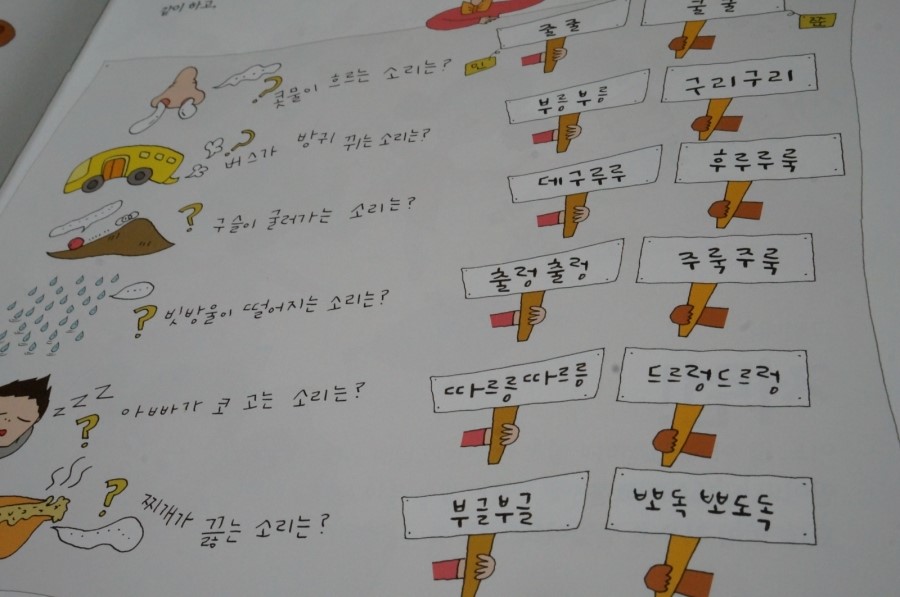 같이 하고,
줄줄
쿨쿨
또는
콧물이 흐르는 소리는?
부릉부릉
구리구리
버스가 방귀 뀌는 소리는?
데구루루
후루루룩
구슬이 굴러가는 소리는?
출렁출렁
주룩주룩
빗방울이 떨어지는 소리는?
따르릉따르릉
드르렁드르렁
ZZZ
아빠가 코 고는 소리는?
부글부글
뽀독뽀도독
찌개가 끓는 소리는?